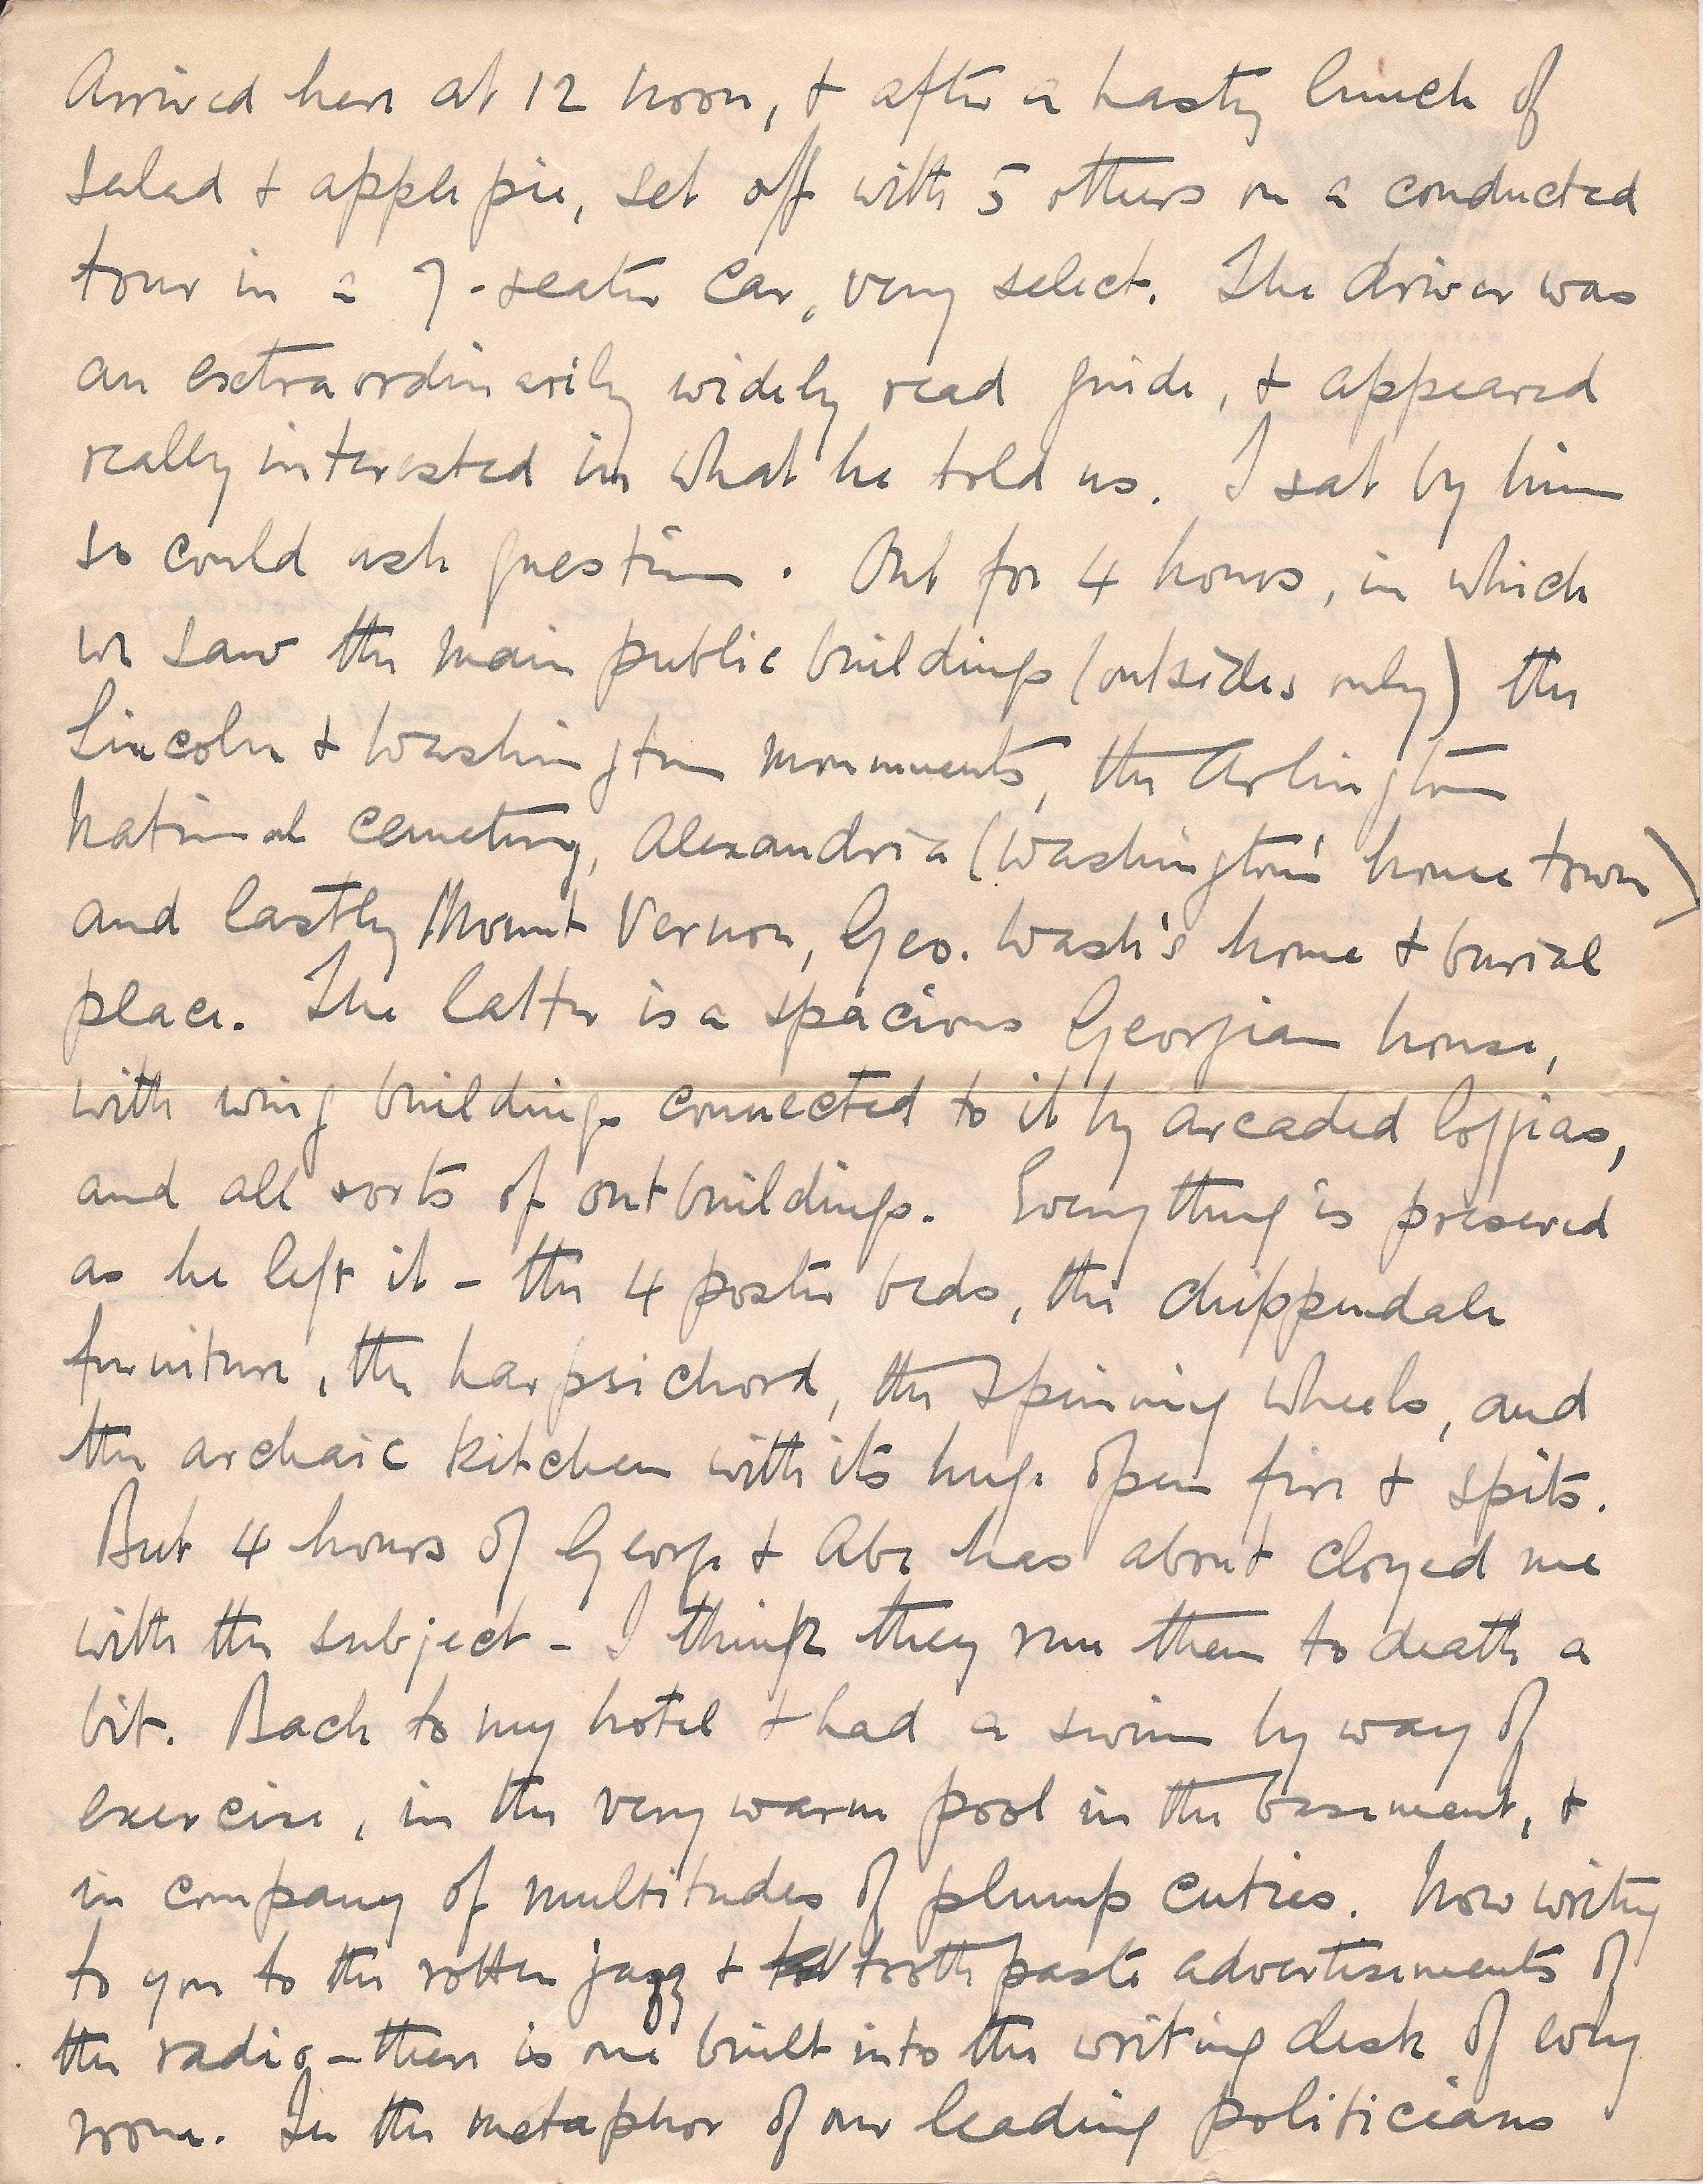 Arrived here at 12 noon, & after a hasty lunch of
salad & apple pie, set off with 5 others on a conducted
tour in a 7-seater car, very select. The driver was
an extraordinarily widely read guide, & appeared
really interested in what he told us. I sat by him
so could ask questions. Out for 4 hours, in which
we saw the main public buildings (outsides only) the
Lincoln & Washington monuments, the Arlington
National cemetery, Alexandria (Washington's home town)
and lastly Mount Vernon, Geo. Wash's home & burial
place. The latter is a spacious Georgian house,
with wing buildings connected to it by arcaded loggias,
and all sorts of outbuildings. Everything is preserved
as he left it - the 4 poster beds, the chippendale
furniture, the harpsichord, the spinning wheels, and
the archaic kitchen with its huge open fire & spits.
But 4 hours of George & Abe has about cloyed me
with the subject - I think they run them to death a
bit. Back to my hotel & had a swim by way of
exercise, in the very warm pool in the basement, &
in company of multitudes of plump cuties. Now writing
to you to the rotten jazz & tooth paste advertisements of
the radio - there is one built into the writing desk of every
room. In the metaphor of our leading politicians